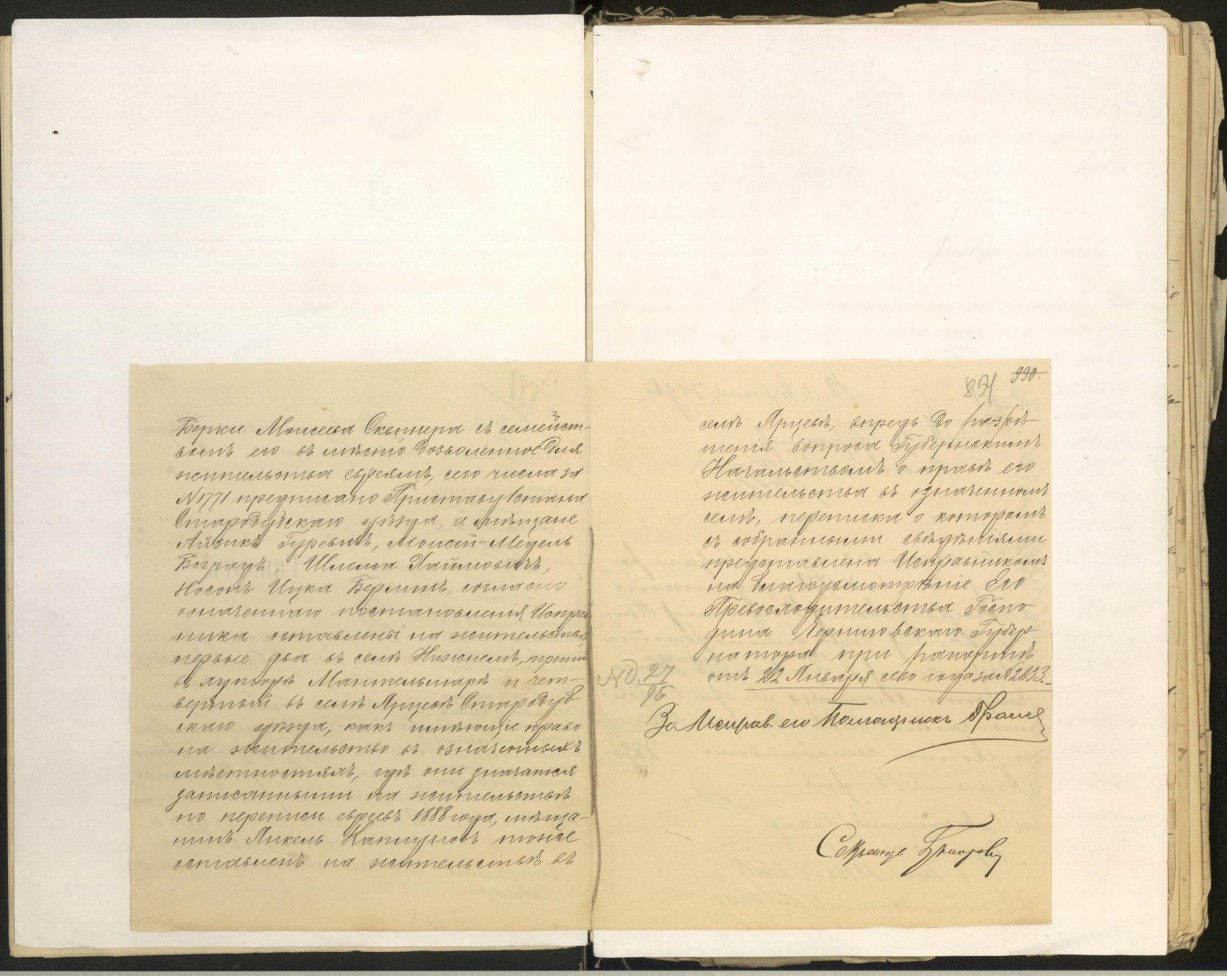 Берки Моисеева Скепнера съ семейст-
вомъ его въ мѣсто дозволенное для
жительства евреямъ, сего числа за
N 1771 предписано Приставу 1 стана
Стародубскаго уѣзда, а мѣщане
Айзикъ Гуревичъ, Моисей-Медель
Шлема Хаймовичъ,
Носонъ Ицка Берлинъ, согласно
означеннаго постановленія Исправ
ника оставлены на жительствѣ
первые два въ селѣ Нижнемъ, третій
въ хуторѣ и чет-
вертый въ селѣ Арцевѣ Стародуб
скаго уѣзда, какъ имѣющіе право
на жительство въ означенныхъ
мѣстностяхъ, гдѣ они значатся
записанными на жительствѣ
по переписи евреевъ 1888 года, мѣща-
нинъ Янкель Каплуновъ тоже
оставленъ на жительствѣ въ
831 990.
селѣ Арцевѣ, впредь до разрѣ
шенія вопроса Губернскимъ
Начальствомъ о правѣ его
жительства въ означенномъ
селѣ, переписка о которомъ
съ собранными свѣдѣніями
представлена Исправникомъ
на благоусмотрѣніе Его
Превосходительства Госпо
дина Черниговскаго Губер
натора при рапортѣ
отъ 22 Января сего года за N 2833.
27
96
За Исправ. его Помощникъ
Секретарь